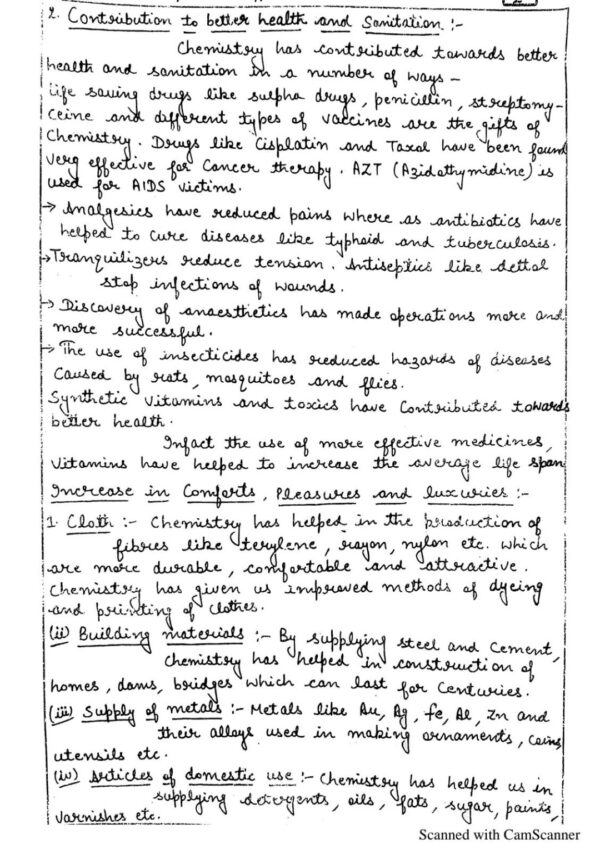 2. Contribution to better health and Sanitation :-
Chemistry has contributed towards better
health and sanitation in a number of ways -
Life saving drugs like sulpha drugs, penicillin, streptomy-
ceine and different types of vaccines are the gifts of
Chemistry. Drugs like Cisplatin and Taxol have been found
very effective for Cancer therapy. AZT (Azidothymidine) is
used for AIDS victims.
→ Analgesics have reduced pains where as antibiotics have
helped to cure diseases like typhoid and tuberculosis.
→ Tranquilizers reduce tension. Antiseptics like dettol
stop infections of wounds.
→ Discovery of anaesthetics has made operations more and
more successful.
→ The use of insecticides has reduced hazards of diseases
Caused by rats, mosquitoes and flies.
Synthetic vitamins and toxics have Contributed towards
better health.
Infact the use of more effective medicines,
vitamins have helped to increase the average life span
Increase in Comforts, Pleasures and luxuries :-
1. Cloth :- Chemistry has helped in the production of
fibres like terylene, rayon, nylon etc. which
are more durable, comfortable and attractive.
Chemistry has given us improved methods of dyeing
and printing of clothes.
(ii) Building materials :- By supplying steel and Cement,
Chemistry has helped in construction of
homes, dams, bridges which can last for Centuries.
(iii) Supply of metals :- Metals like Au, Ag, Fe, Al, Zn and
their alloys used in making ornaments, coins,
utensils etc.
(iv) Articles of domestic use :- Chemistry has helped us in
supplying detergents, oils, fats, sugar, paints,
varnishes etc.
Scanned with CamScanner